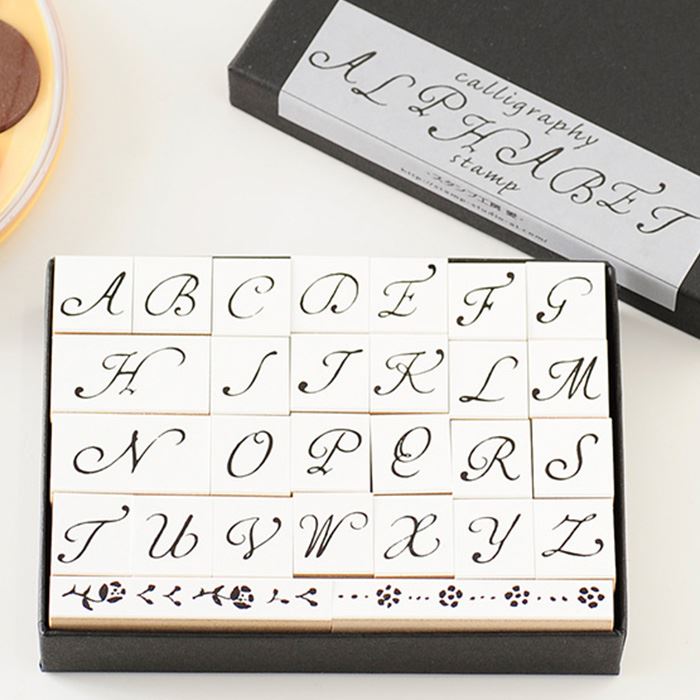 calligraphy
ALPHABET
stamp
http://stamp-studio-ai.com/
A B C D E F G
H I J K L M
N O P Q R S
T U V W X Y Z